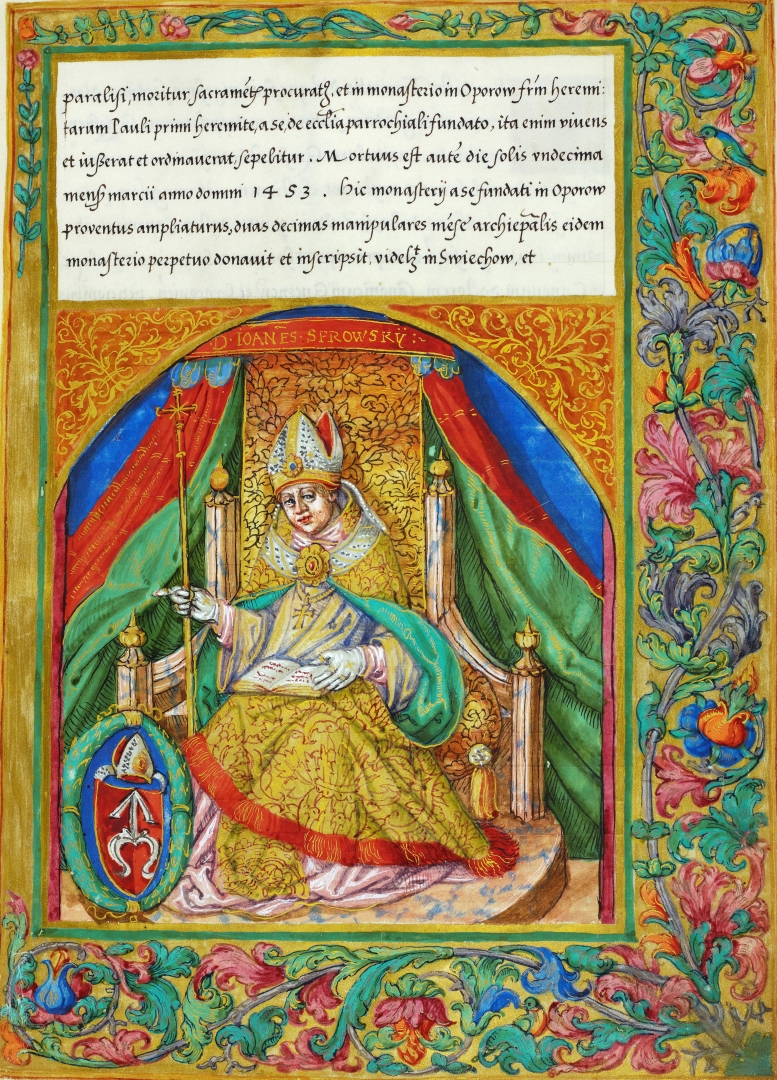 paralisi, moritur, sacramētꝭ procuratꝰ, et in monasterio in Oporow fr̄m heremi:
tarum Pauli primi heremite, a se, de ecclīa parrochiali fundato, ita enim vivens
et iusserat et ordinauerat, sepelitur. Mortuus est autē die solis vndecima
mensꝭ marcii anno domini 1453. Hic monasterij a se fundati in Oporow
proventus ampliaturus, duas decimas manipulares mēse archiep̄alis eidem
monasterio perpetuo donavit et inscripsit, videlꝫt in Swiechow, et
D · IOANĒS · SPROWSKŸ :·